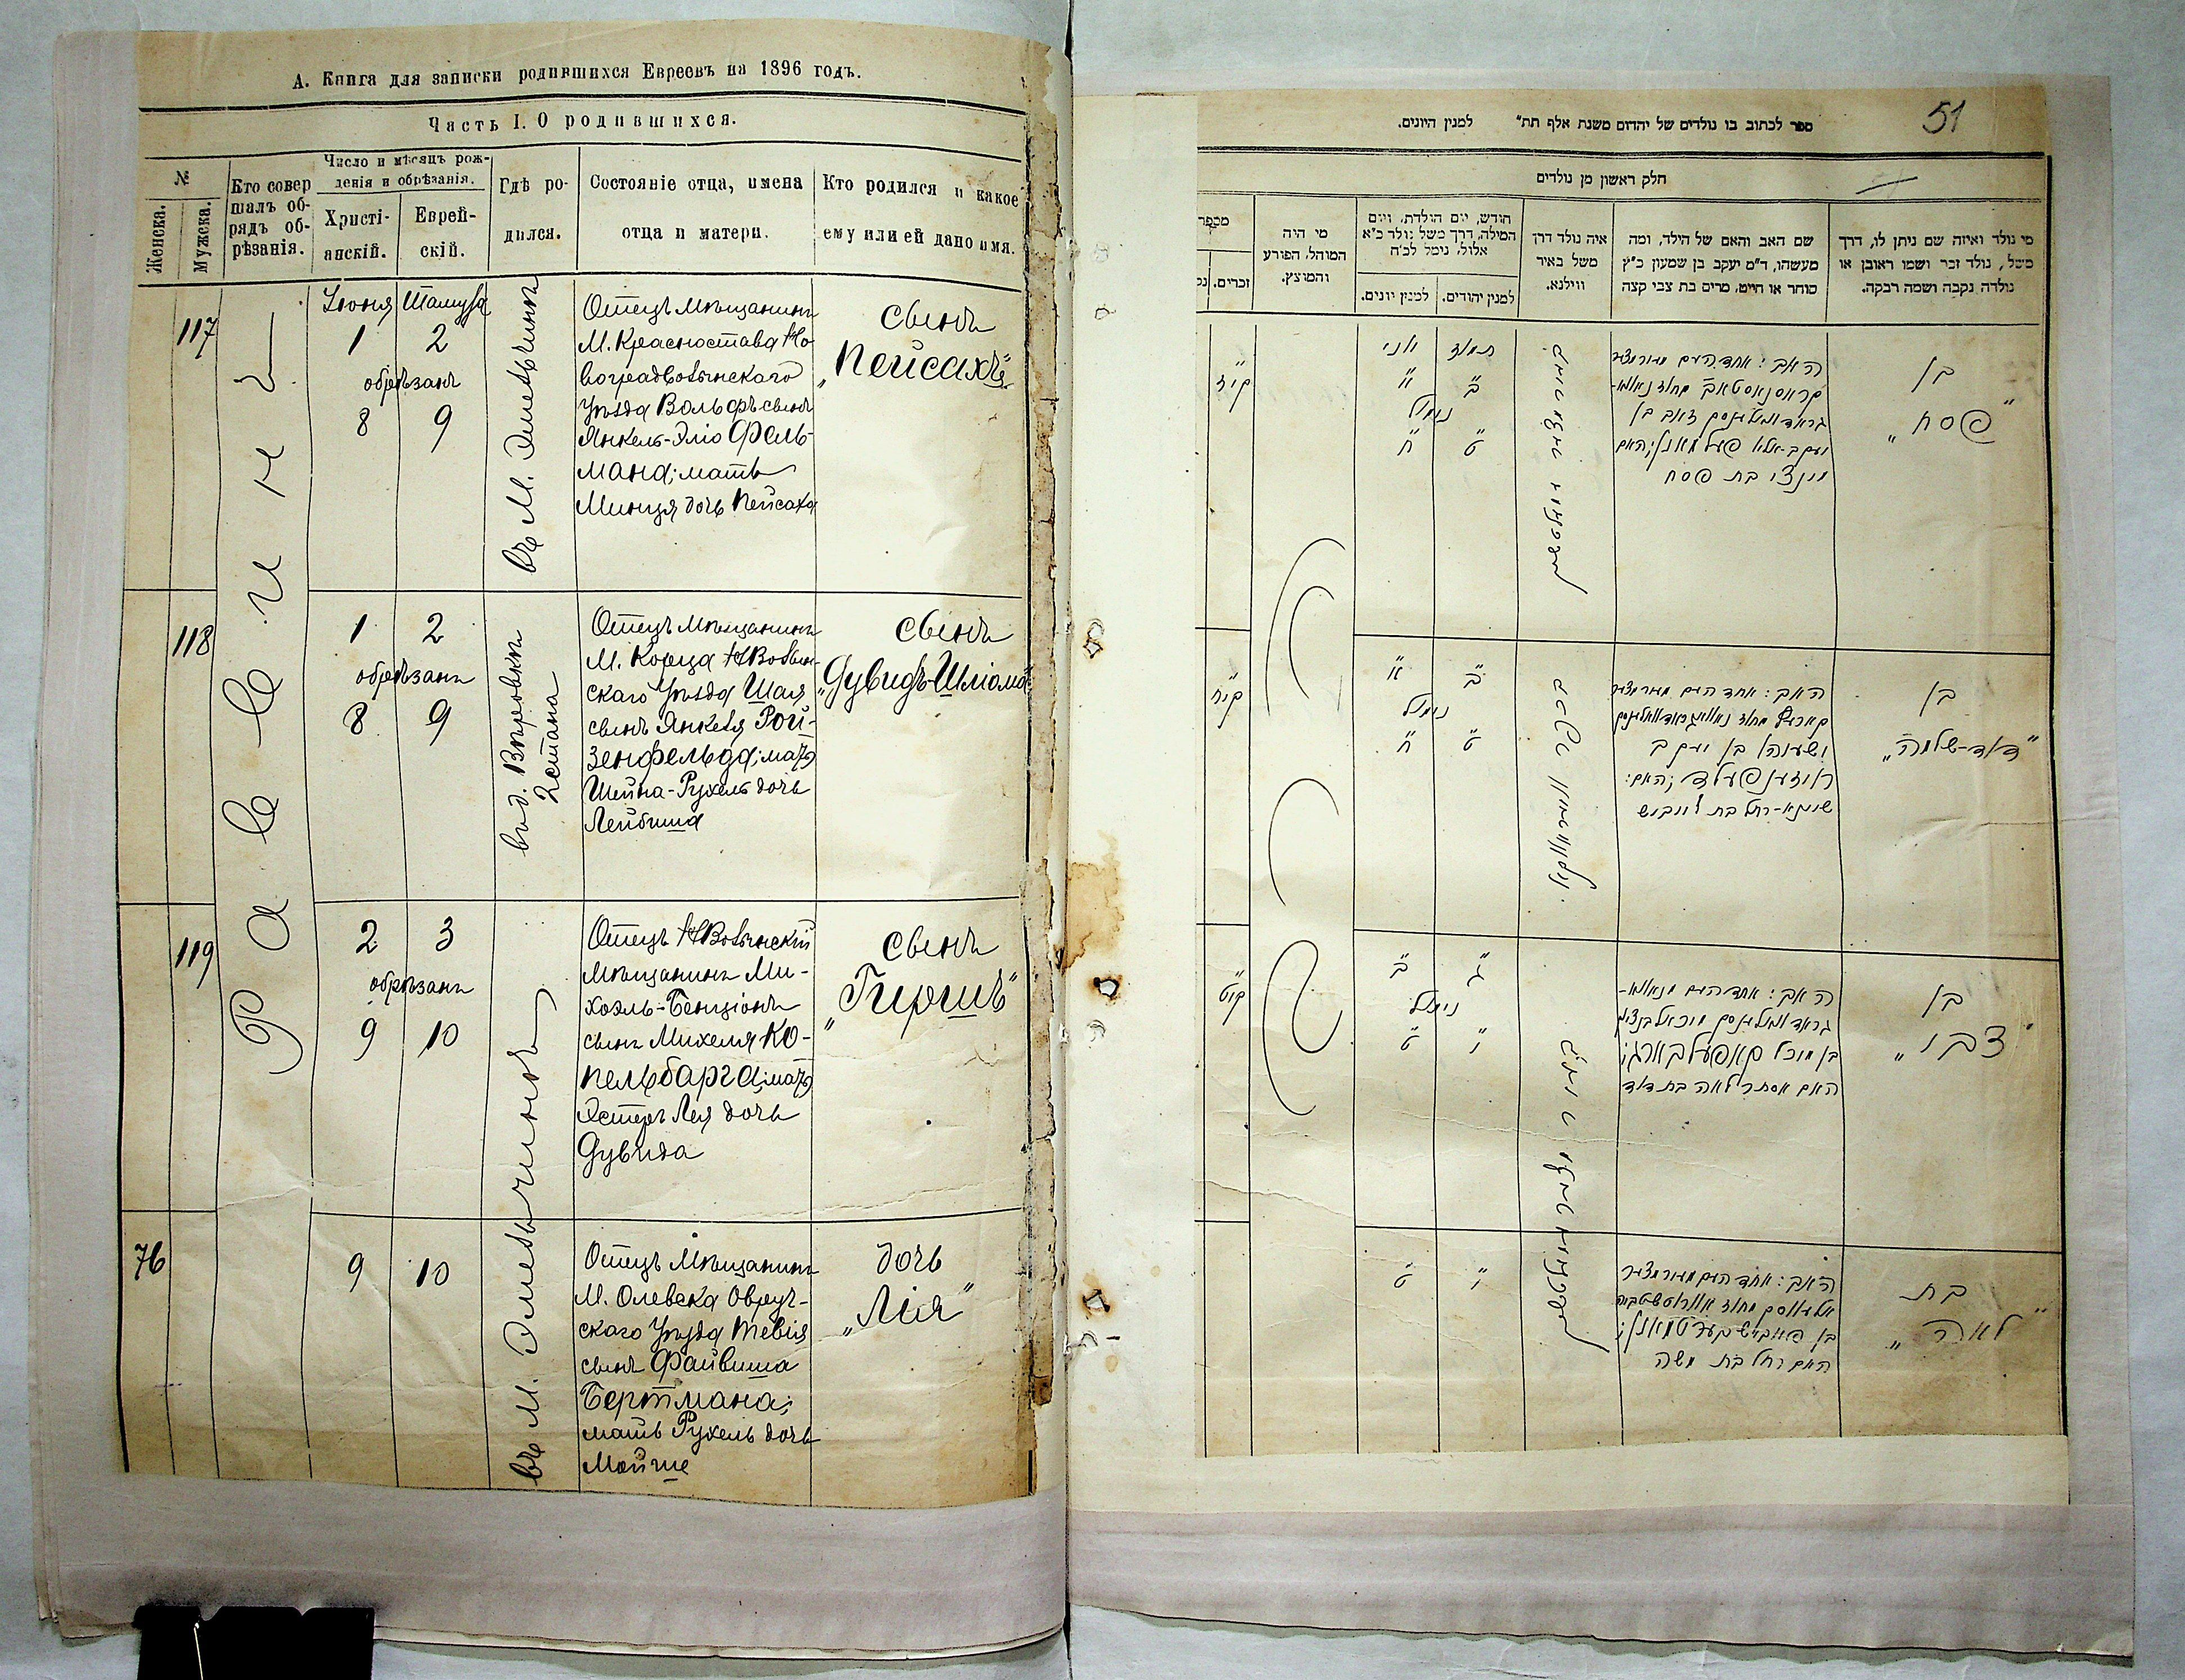 А. Книга для записки родившихся Евреевъ на 1896 годъ.
Часть I. О родившихся.
№
Женска.
Мужска.
Кто совер
шалъ об-
рядъ об-
рѣзанія.
Число и мѣсяцъ рож-
денія и обрѣзанія.
Христі-
анскій.
Еврей-
скій.
Гдѣ ро-
дился.
Состояніе отца, имена
отца и матери.
Кто родился и какое
ему или ей дано имя.
Раввинъ
117
Іюня Тамуза
1 2
обрѣзанъ
8 9
въ М. Эмельчинѣ
Отецъ Мѣщанинъ
М. Красностава Но-
воградволынскаго
Уѣзда Вольфъ сынъ
Янкель-Эліо Фель-
мана; мать
Минця дочь Пейсаха
сынъ
„Пейсахъ“
118
1 2
обрѣзанъ
8 9
2 стана
Отецъ Мѣщанинъ
М. Корца НВолын-
скаго Уѣзда Шая
сынъ Янкеля Рой-
зенфельда; мать
Шейна-Рухель дочь
Лейбиша
сынъ
„Дувидъ-Шліома“
119
2 3
обрѣзанъ
9 10
Отецъ НВолынскій
Мѣщанинъ Ми-
хоэль-Бенціонъ
сынъ Михеля Ко-
пельбарга; мать
Эстеръ Лея дочь
Дувида
сынъ
„Гиршъ“
76
9 10
въ М. Эмельчинѣ
Отецъ Мѣщанинъ
М. Олевска Овруч-
скаго Уѣзда Тевія
сынъ Файвиша
Бертмана;
мать Рухель дочь
Мойше
дочь
„Лія“
51
ספר לכתוב בו נולדים של יהדום משנת אלף תת״ למנין היונים.
חלק ראשון מן נולדים
מי נולד ואיזה שם ניתן לו, דרך
משל, נולד זכר ושמו ראובן או
נולדה נקבה ושמה רבקה.
שם האב והאם של הילד, ומה
מעשהו, ד״מ יעקב בן שמעון כ״ץ
סוחר או חייט, מרים בת צבי קצה
איה נולד דרך
משל באיר
ווילנא.
חודש, יום הולדת, ויום
המילה, דרך משל נולד כ״א
אלול, נימל לכ״ח
למנין יהודים.
למנין יונים.
מי היה
המוהל, הפורע
והמוצץ.
מכפר
זכרים.
בן
„פסח“
האב: אחד
בן
זאב בן
האם
מינצי בת פסח
תמוז יוני
ב א
נימול
ט ח
קיז
בן
„דוד-שלמה“
האב: אחד
ישעיהו בן יעקב
רויזענפעלד; האם:
שיינא-רחל בת לייביש
ב א
נימול
ט ח
קיח
בן
„צבי“
האב: אחד
בן מיכל קאפעלבארג;
האם אסתר לאה בת דוד
ג ב
נימול
י ט
קיט
בת
„לאה“
האב: אחד
האם רחל בת משה
י ט